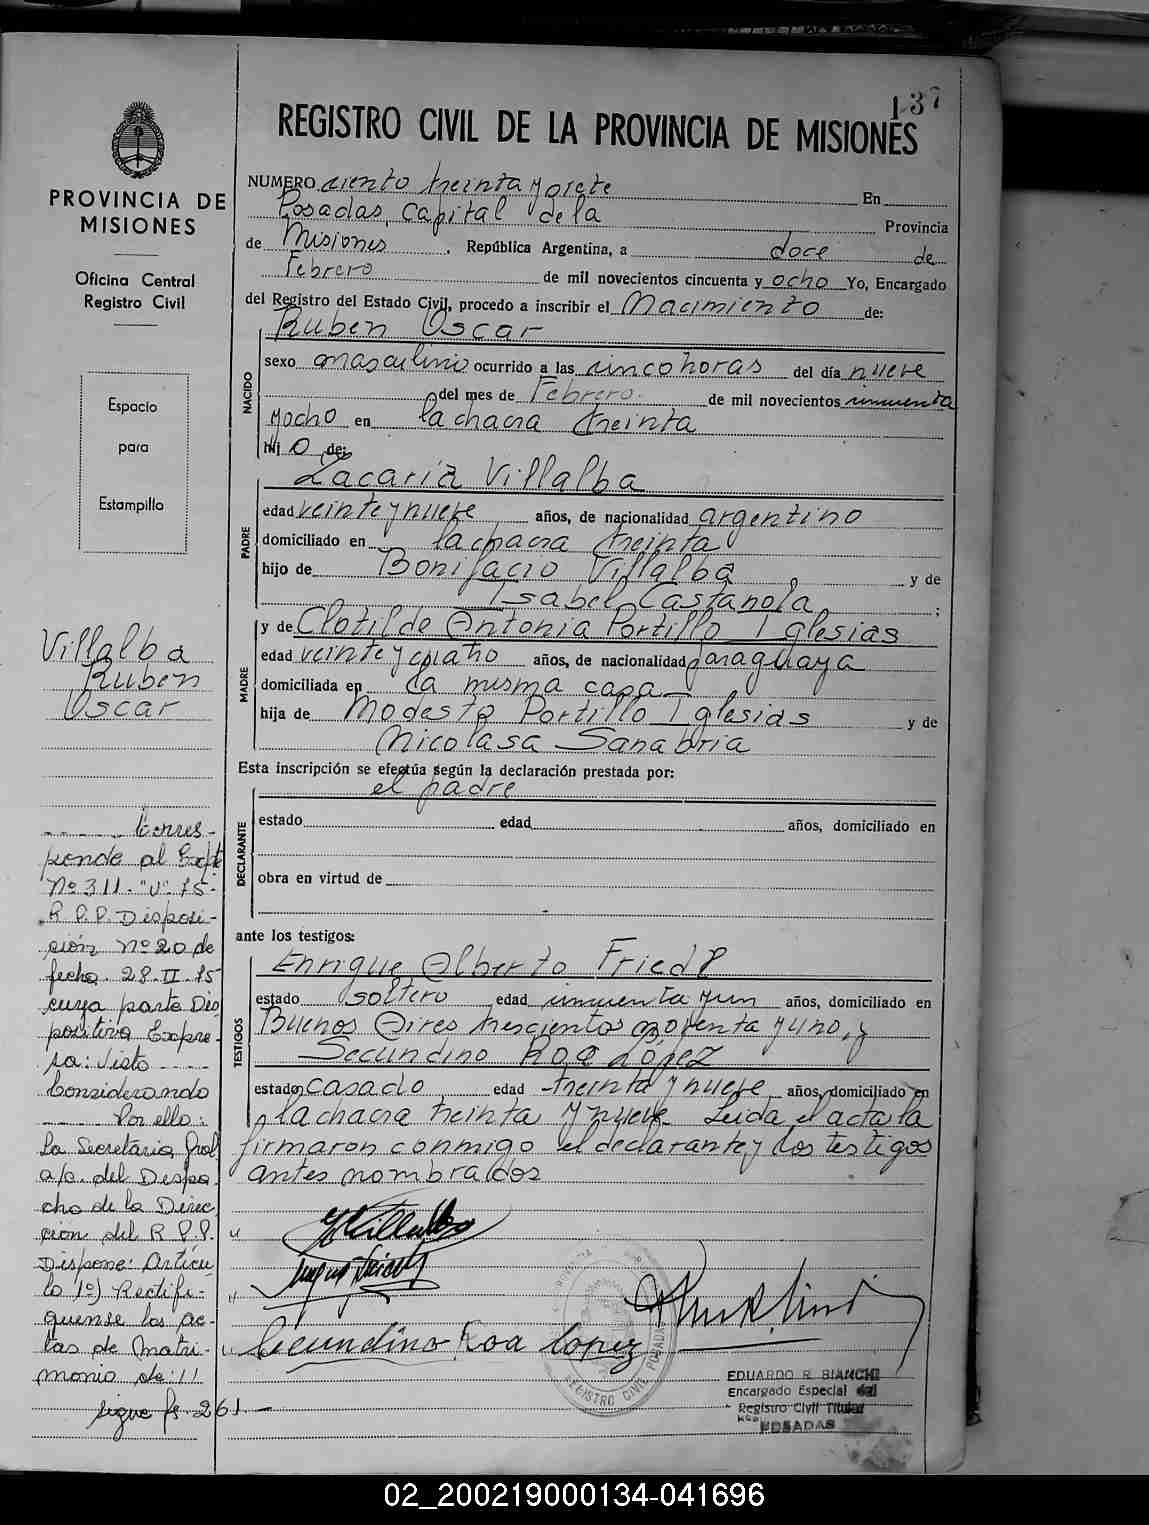 137
REGISTRO CIVIL DE LA PROVINCIA DE MISIONES
PROVINCIA DE
MISIONES
Oficina Central
Registro Civil
Espacio
para
Estampillo
Villalba
Ruben
Oscar
Corres-
ponde al Expte
Nº 311. "V". 75-
R.P.P. Disposi-
ción Nº 20 de
fecha 28-II-75
cuya parte Dis
positiva Expre-
sa: Visto
Considerando
Por ello:
La Secretaria Gral
a/c. del Despa-
cho de la Direc
ción del R.P.P.
Dispone: Artícu
lo 1º) Rectifi-
quense las ac-
tas de Matri-
monio de: 11
sigue fs. 261.-
NUMERO ciento treinta y siete En
Posadas, Capital de la Provincia
de Misiones, República Argentina, a doce de
Febrero de mil novecientos cincuenta y ocho Yo, Encargado
del Registro del Estado Civil, procedo a inscribir el Nacimiento de:
NACIDO
Ruben Oscar
sexo masculino ocurrido a las cinco horas del día nueve
del mes de Febrero de mil novecientos cincuenta
y ocho en la chacra treinta
hijo de:
PADRE
Zacaria Villalba
edad veinte y nueve años, de nacionalidad argentino
domiciliado en la chacra treinta
hijo de Bonifacio Villalba y de
Isabel Castañola;
MADRE
y de Clotilde Antonia Portillo Iglesias
edad veinte y cuatro años, de nacionalidad paraguaya
domiciliada en la misma casa
hija de Modesto Portillo Iglesias y de
Nicolasa Sanabria
Esta inscripción se efectúa según la declaración prestada por:
el padre
DECLARANTE
estado edad años, domiciliado en
obra en virtud de
ante los testigos:
TESTIGOS
Enrique Alberto Friedl
estado soltero edad cincuenta y un años, domiciliado en
Buenos Aires trescientos noventa y uno, y
Secundino Roa López
estado casado edad treinta y nueve años, domiciliado en
la chacra treinta y nueve. Leida el acta la
firmaron conmigo el declarante y los testigos
antes nombrados
Secundino Roa Lopez
REGISTRO CIVIL POSADAS
EDUARDO R. BIANCHI
Encargado Especial del
Registro Civil Titular
POSADAS
02_200219000134-041696